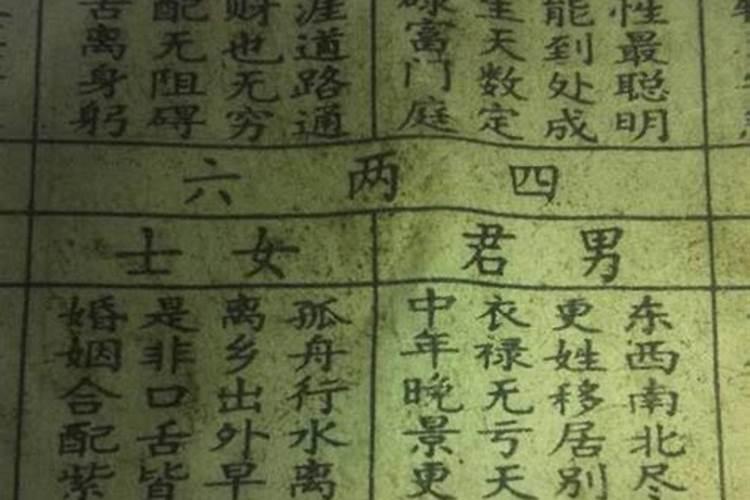 性最聪明
能到处成
天数定
禄富门庭
涯道路通
财也无穷
配无阻碍
离身躬
四两六
男君
女士
东西南北尽
更姓移居别
衣禄无亏天
中年晚景更
孤舟行水离
离乡出外早
是非口舌皆
婚姻合配紫